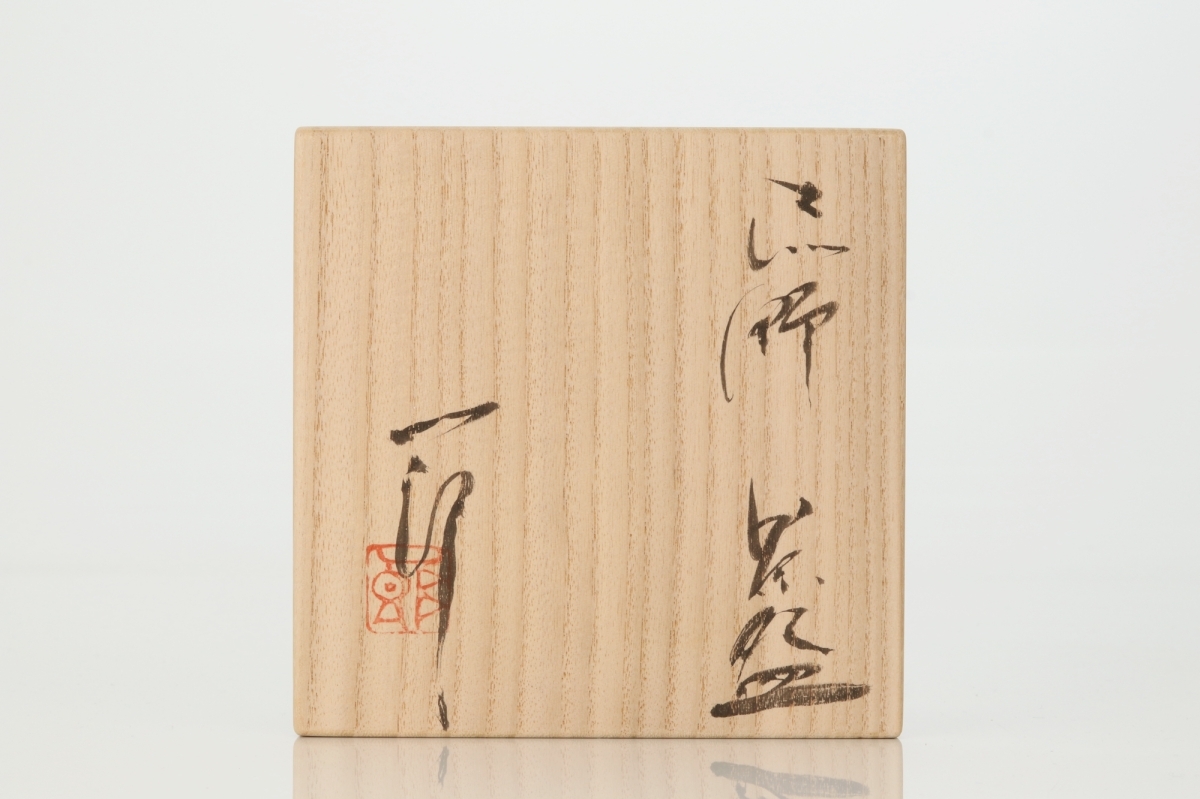 志野
茶盌
一郎